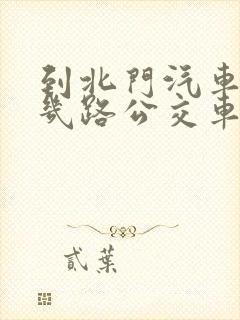 到北門汽車
幾路公交車
貳葉